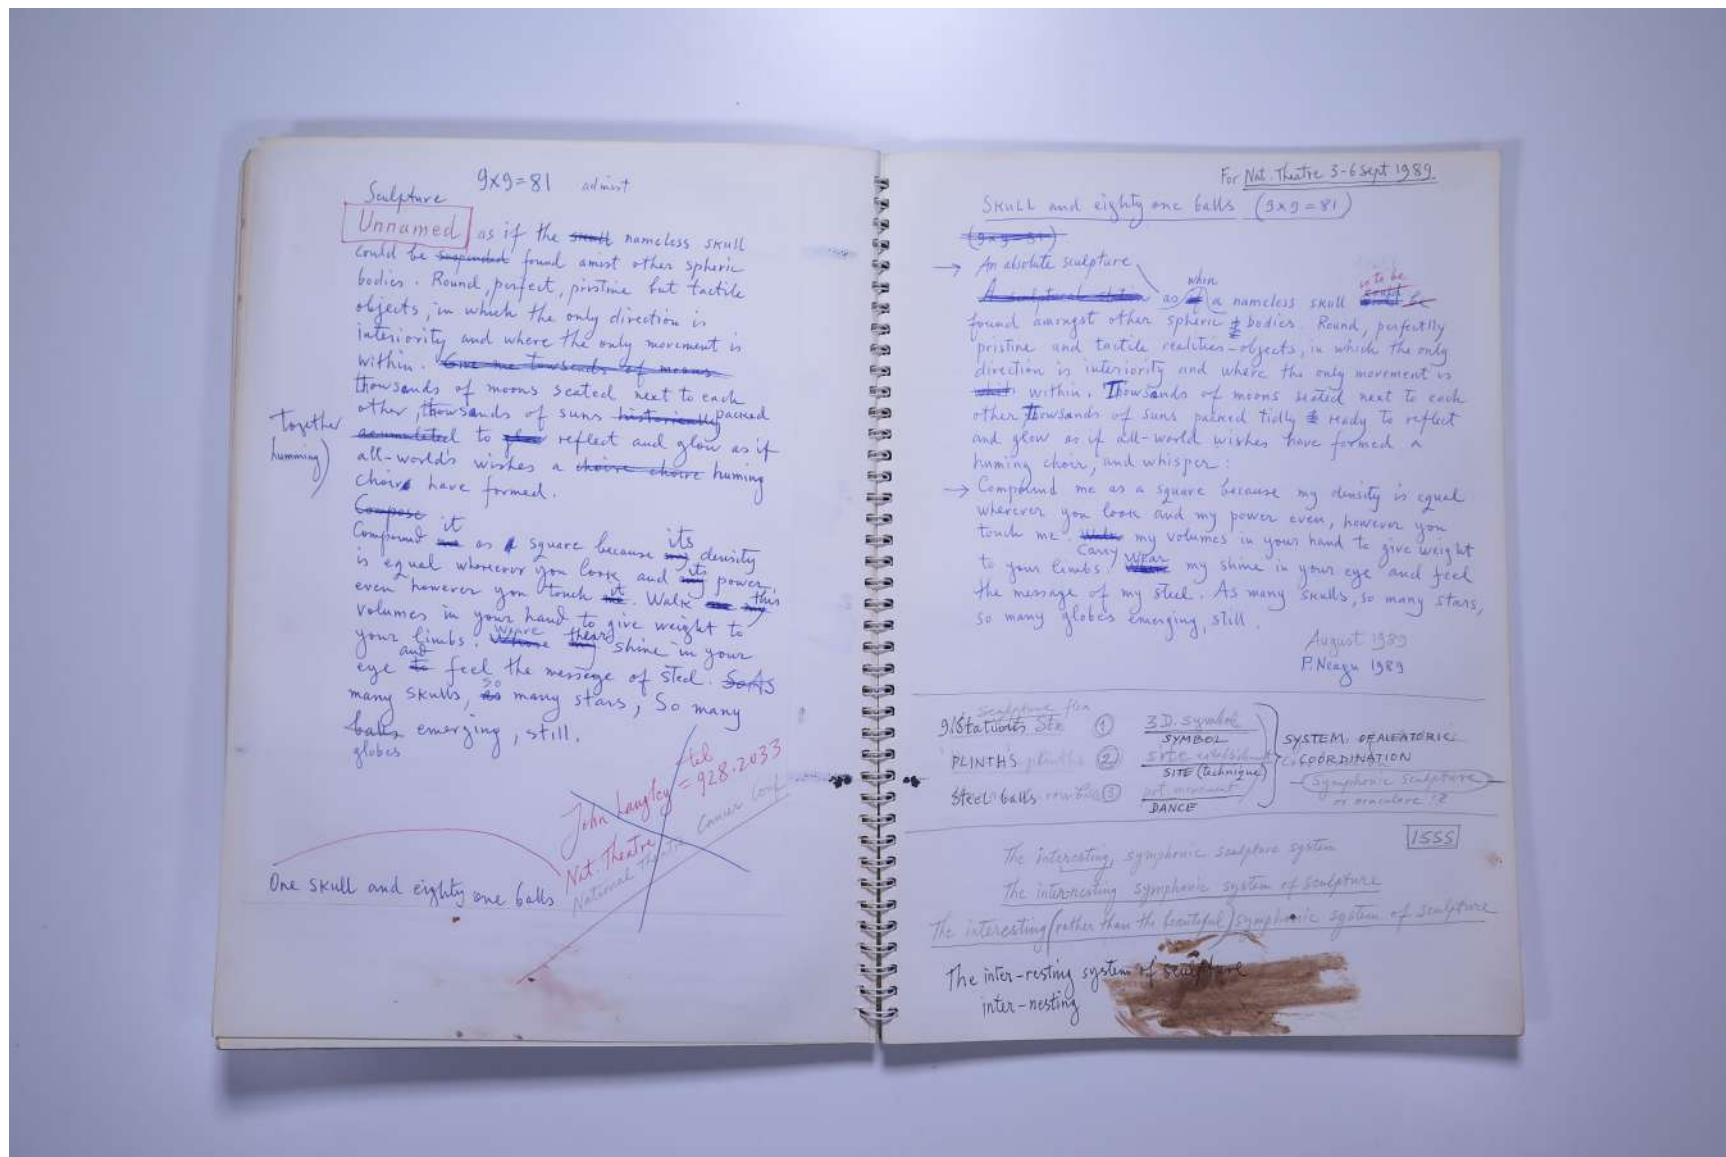 9x9=81
Sculpture
Unnamed as if the nameless skull
could be suspended found amist other spheric
bodies. Round, perfect, pristine but tactile
objects, in which the only direction is
interiority and where the only movement is
within. Give me towsends of moons
thowsands of moons seated next to each
other, thowsands of suns historically packed
together
acumulated to reflect and glow as if
humming)
all-world's wishes a choire choire huming
choir have formed.
Compose
it its
Compound me as a square because my density
is equal wherever you look and my its power
even however you touch me it. Walk this
volumes in your hand to give weight to
your limbs. shine in your
and
eye to feel the message of steel. So As
many skulls, as so many stars, So many
balls emerging, still.
globes
tel
John Langley = 928.2033
Nat. Theatre
National Theatre
One skull and eighty one balls
For Nat. Theatre 3-6 Sept 1989.
SKULL and eighty one balls (9x9=81)
(9x9=81)
→ An absolute sculpture
when to be
A sculptural as if a nameless skull could be
found amongst other spheric bodies. Round, perfectlly
pristine and tactile realities-objects, in which the only
direction is interiority and where the only movement is
within. Thowsands of moons seated next to each
other thowsands of suns packed tidly ready to reflect
and glow as if all-world wishes have formed a
huming choir, and whisper:
→ Compound me as a square because my density is equal
wherever you look and my power even, however you
touch me. Walk my volumes in your hand to give weight
Carry
to your limbs. Wear my shine in your eye and feel
the message of my steel. As many skulls, so many stars,
so many globes emerging, still.
August 1989
P. Neagu 1989
sculpture
Statuouts Ste 1 3D. symbol
SYMBOL
SYSTEM OF ALEATORIC
PLINTHS plinths 2 site
COORDINATION
SITE (technique)
Symphonic sculpture
Steel balls 3 movement
DANCE
1555
The interesting, symphonic sculpture system
The inter-nesting symphonic system of sculpture
The interesting (rather than the beautiful) symphonic system of sculpture
The inter-resting system of sculpture
inter-nesting